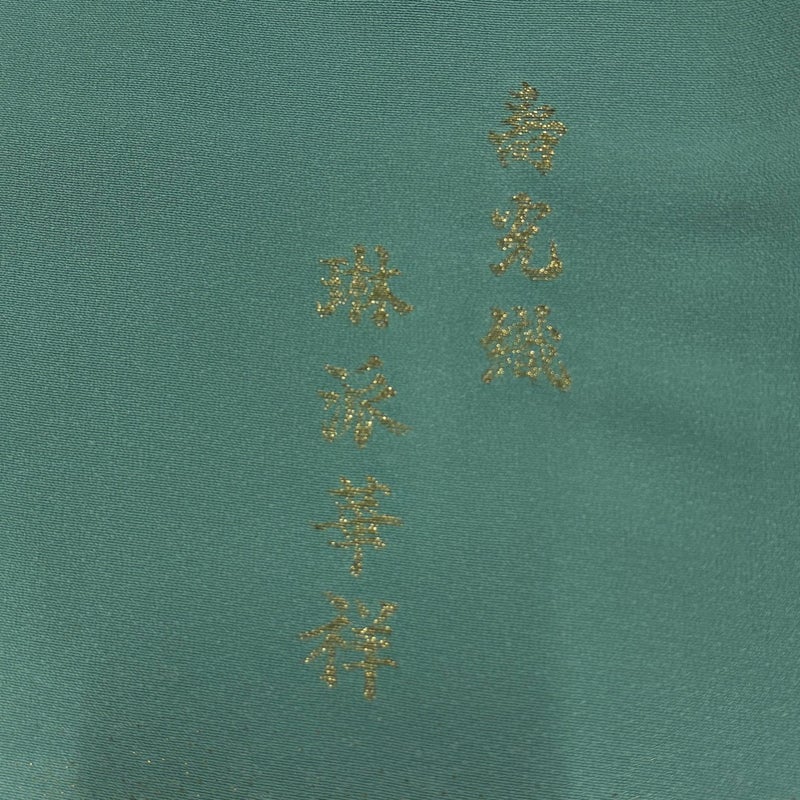 寿光織
琳派華祥